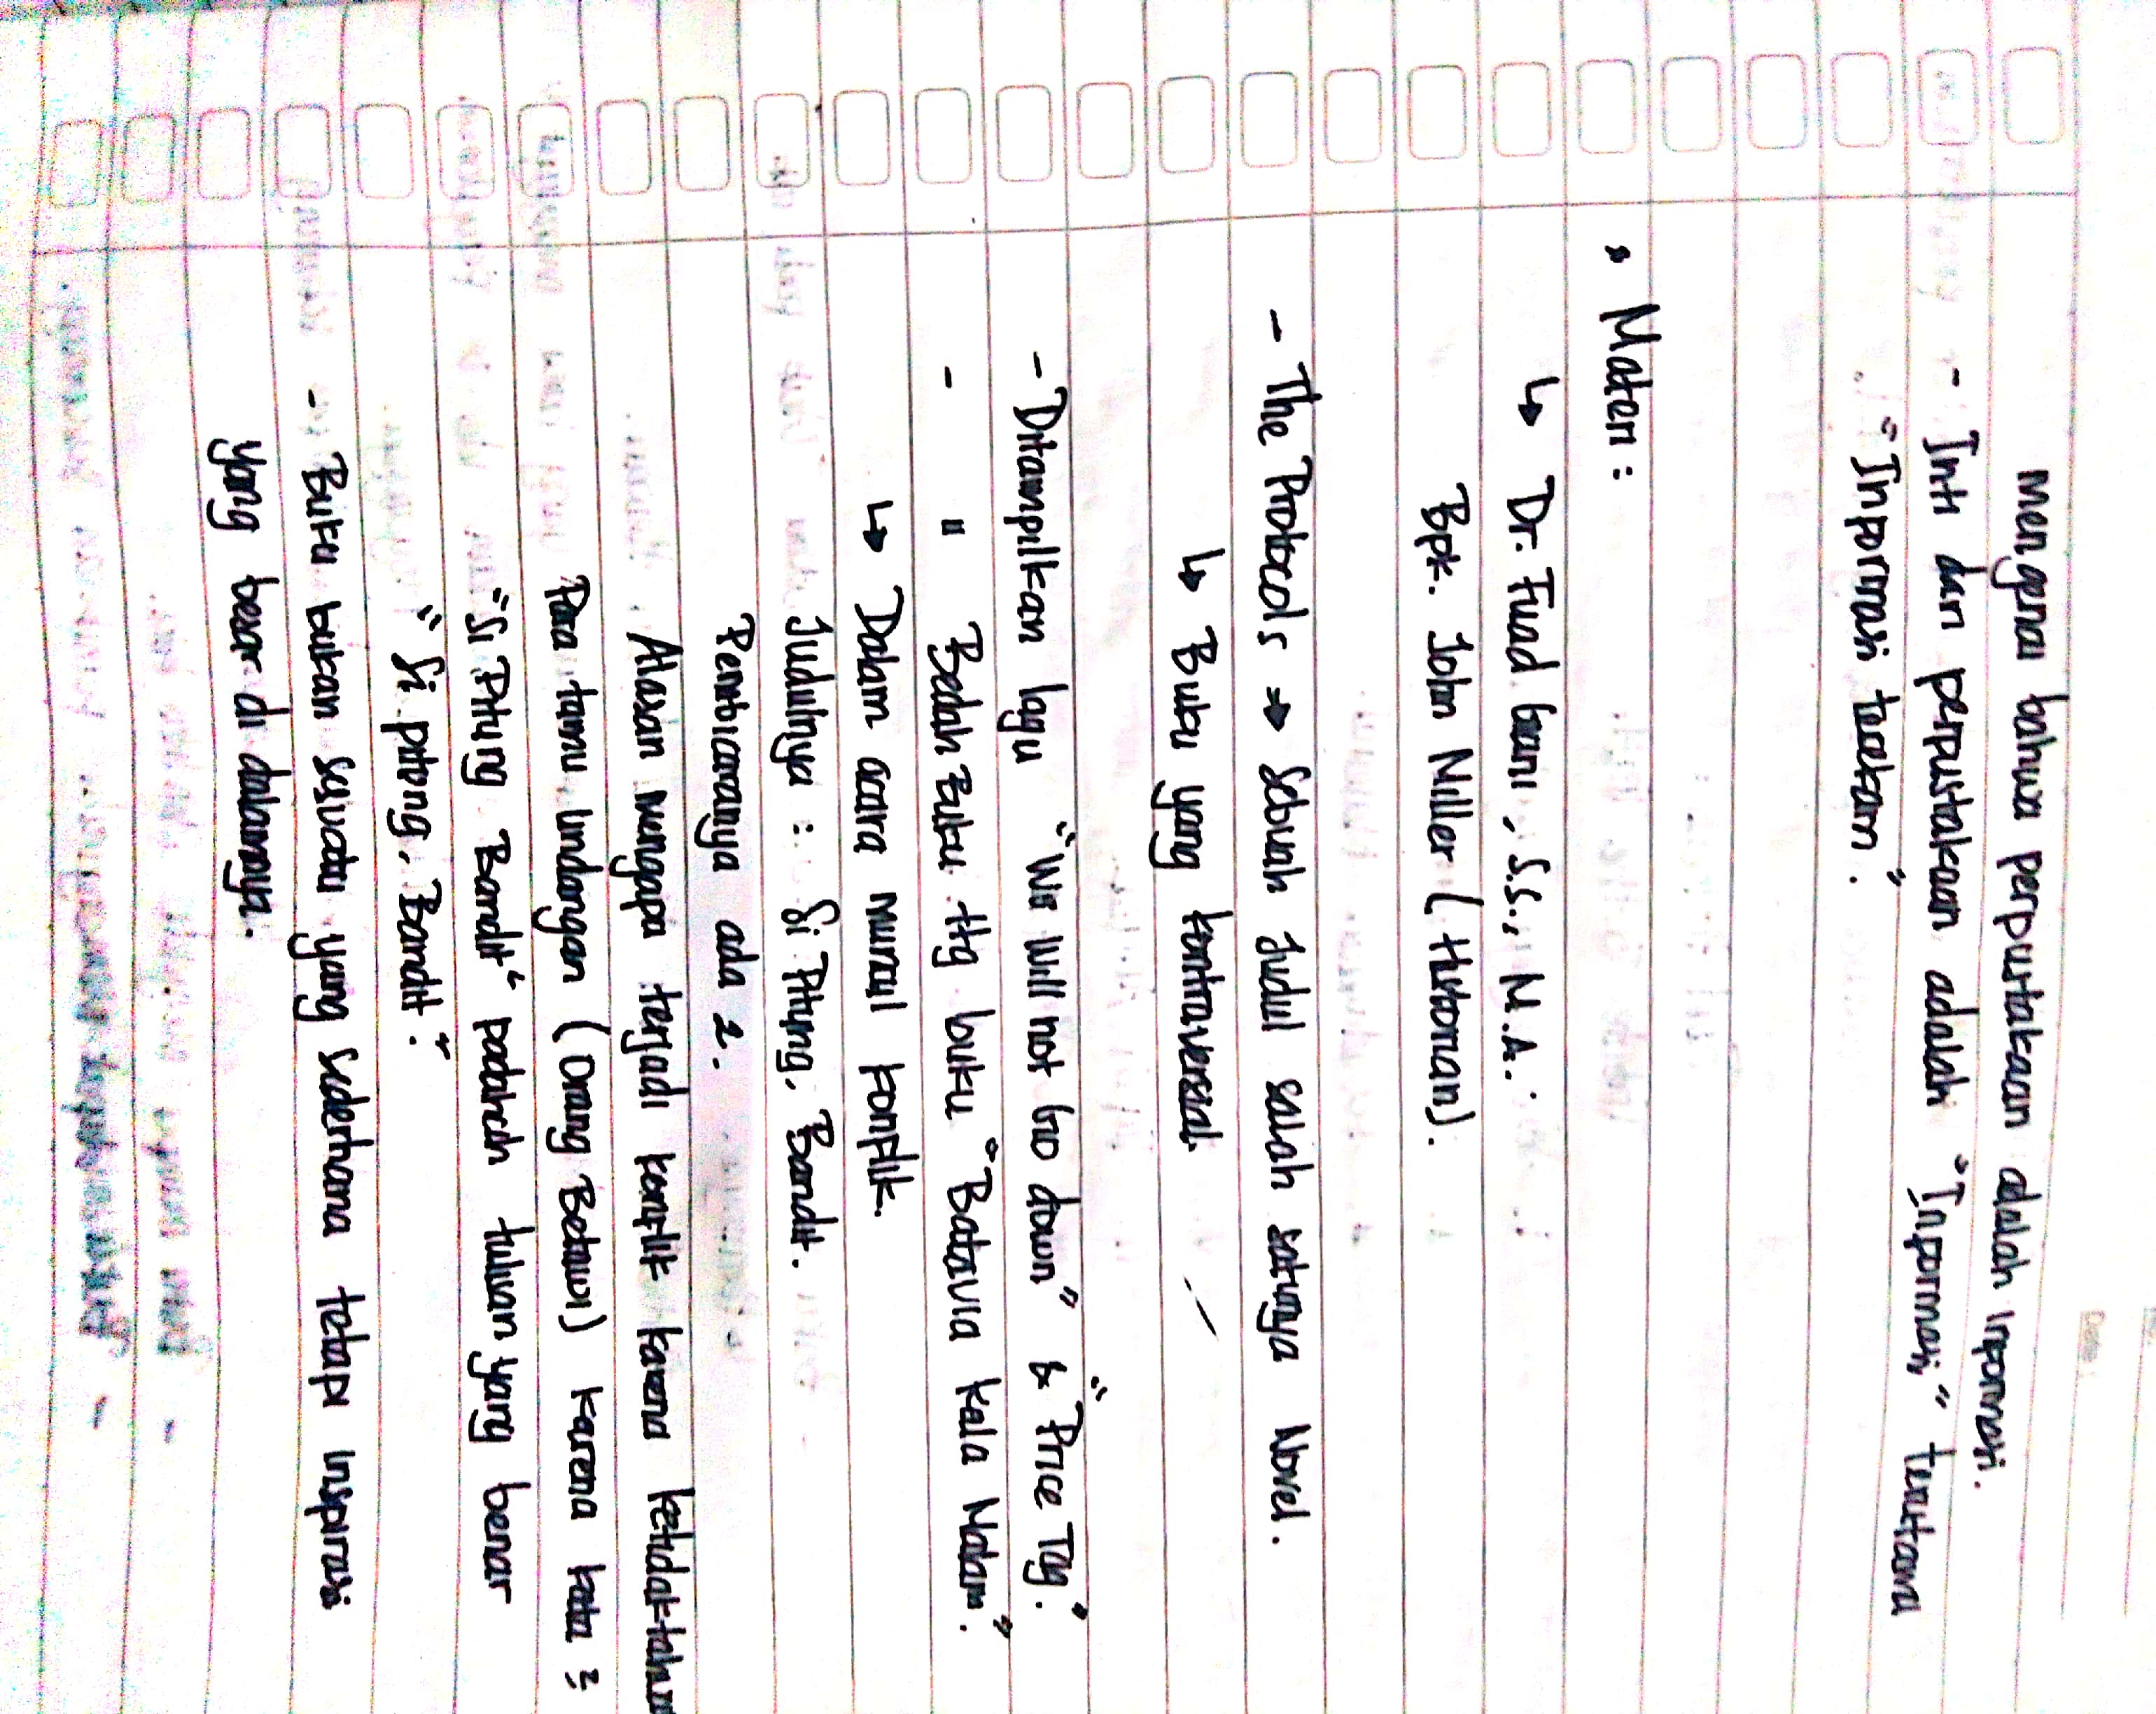 mengenai bahwa perpustakaan adalah inpormasi.
- Inti dari perpustakaan adalah "Inpormasi," terutama
"Inpormasi terekam".
• Materi :
↳ Dr. Fuad Gani, S.S., M.A.
Bpk. John Miller (Husoman).
- The Protocols → Sebuah Judul salah satunya Novel.
↳ Buku yang kontraversial.
- Ditampilkan lagu "We Will not Go down" & "Price Tag".
- " Bedah Buku ttg buku "Batavia Kala Malam".
↳ Dalam acara muncul konflik.
Judulnya : Si Pitung, Bandit.
Pembicaranya ada 2.
Alasan mengapa terjadi konflik karena ketidak-tahuan
Para tamu Undangan (Orang Betawi) karena kata :
"Si Pitung Bandit" padahal tulisan yang benar
"Si pitong, Bandit".
- Buku bukan sesuatu yang sederhana tetapi Inspirasi
yang besar di dalamnya.